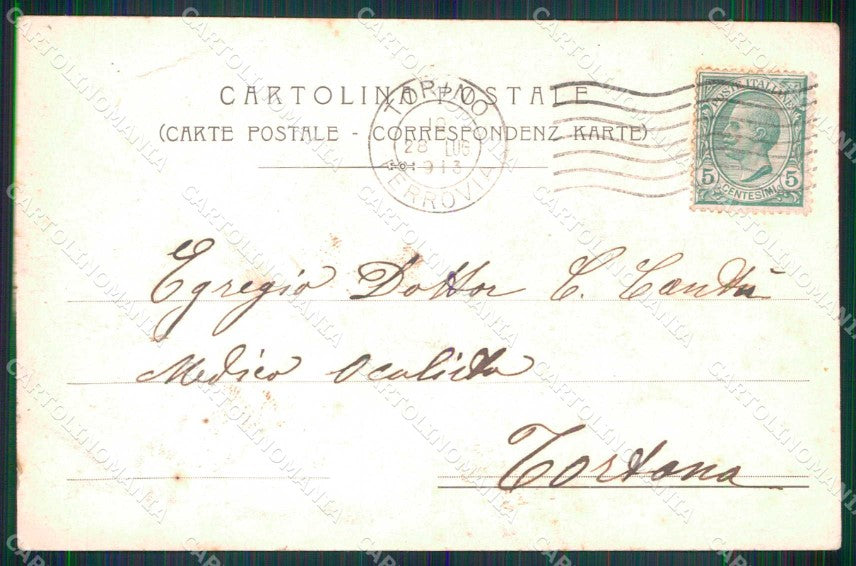 CARTOLINA POSTALE
(CARTE POSTALE - CORRESPONDENZ-KARTE)
TORINO
18
28 LUG
1913
FERROVIA
POSTE ITALIANE
5 CENTESIMI 5
Egregio Dottor C. Cantù
Medico Oculista
Tortona
CARTOLINOMANIA